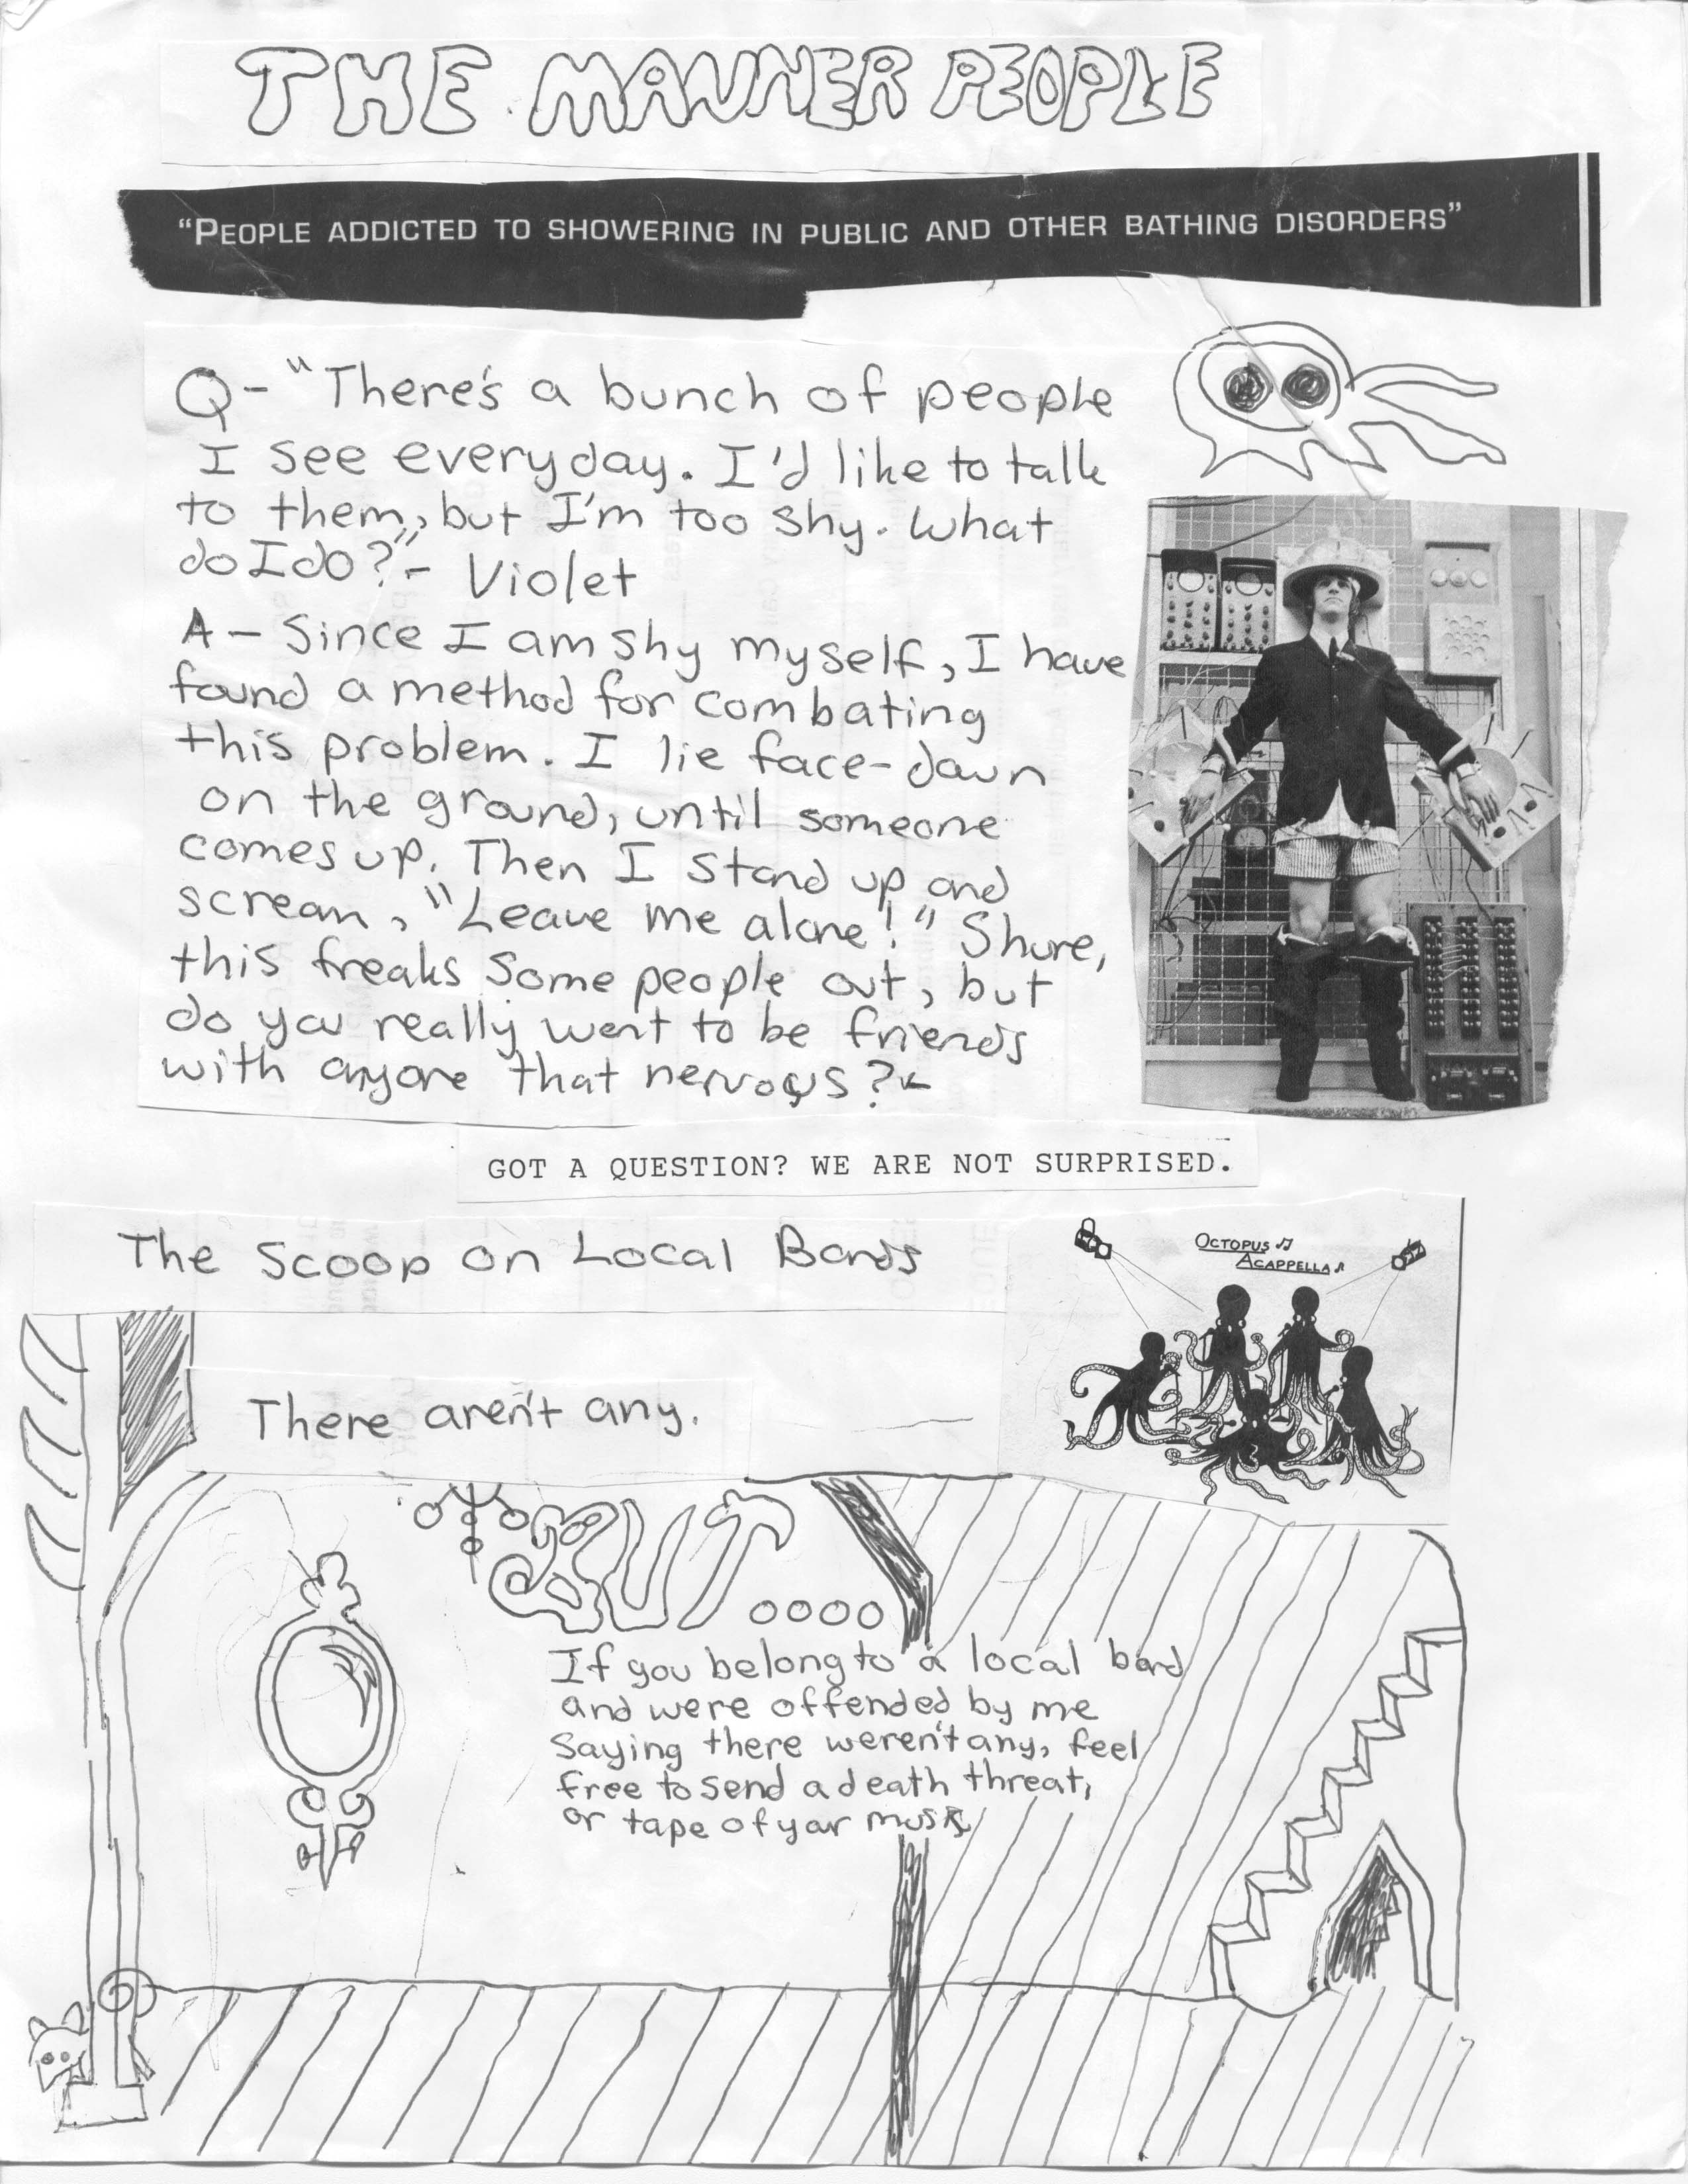 THE MANNER PEOPLE
"PEOPLE ADDICTED TO SHOWERING IN PUBLIC AND OTHER BATHING DISORDERS"
Q- "There's a bunch of people
I see everyday. I'd like to talk
to them, but I'm too shy. What
do I do?" - Violet
A - Since I am shy myself, I have
found a method for combating
this problem. I lie face-down
on the ground, until someone
comes up. Then I stand up and
scream, "Leave me alone!" Shure,
this freaks some people out, but
do you really went to be friends
with anyone that nervous?
GOT A QUESTION? WE ARE NOT SURPRISED.
The Scoop on Local Bands
OCTOPUS
ACAPPELLA
There aren't any.
BUT oooo
If you belong to a local band
and were offended by me
saying there weren't any, feel
free to send a death threat,
or tape of your music